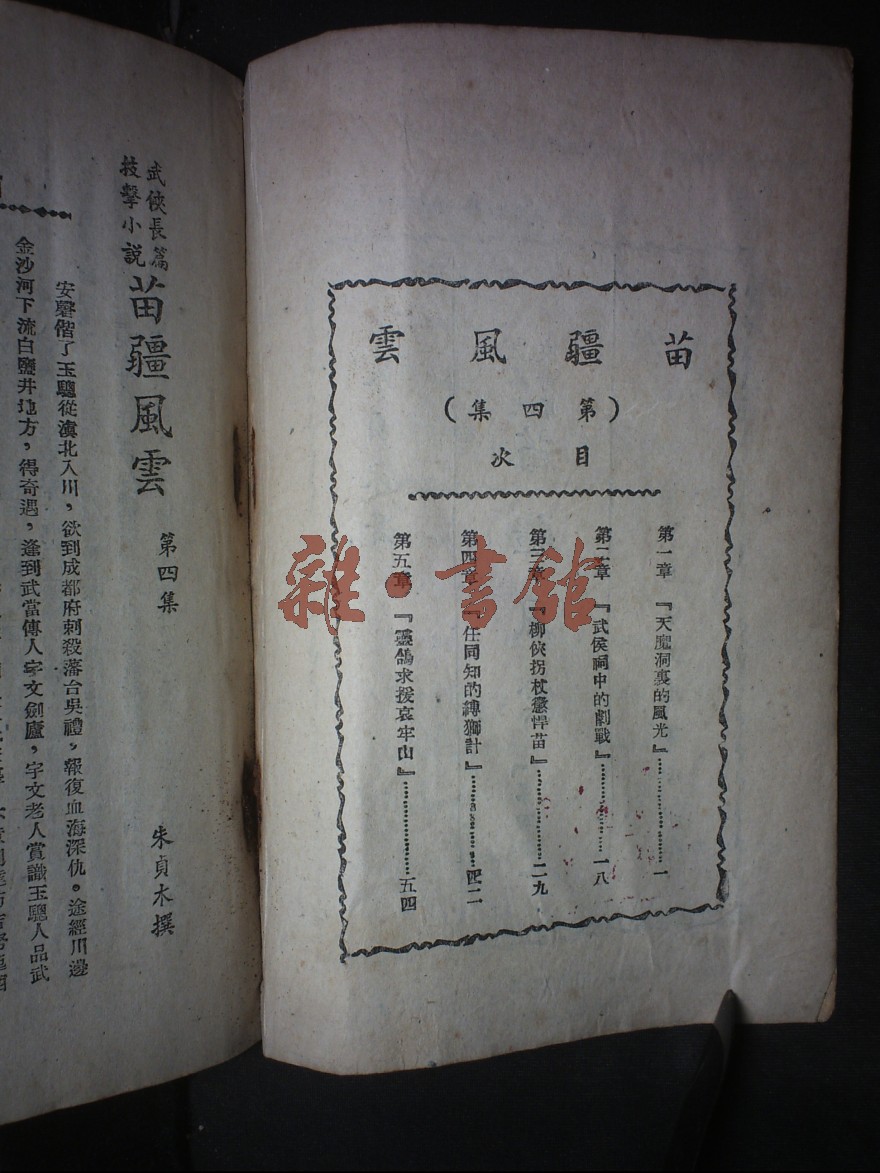 苗疆風雲
（第四集）
目次
第一章 『天魔洞裏的風光』⋯⋯⋯⋯⋯⋯一
第二章 『武侯祠中的劇戰』⋯⋯⋯⋯⋯⋯一八
第三章 『柳俠拐杖懲悍苗』⋯⋯⋯⋯⋯⋯二九
第四章 『任同知的縛獅計』⋯⋯⋯⋯⋯⋯四二
第五章 『靈鴿求援哀牢山』⋯⋯⋯⋯⋯⋯五四
雜·書館
武俠長篇
技擊小說
苗疆風雲 第四集 朱貞木撰
安磬偕了玉驄從滇北入川，欲到成都府刺殺藩台吳禮，報復血海深仇。途經川邊
金沙河下流白鹽井地方，得奇遇，逢到武當傳人宇文劍廬，宇文老人賞識玉驄人品武